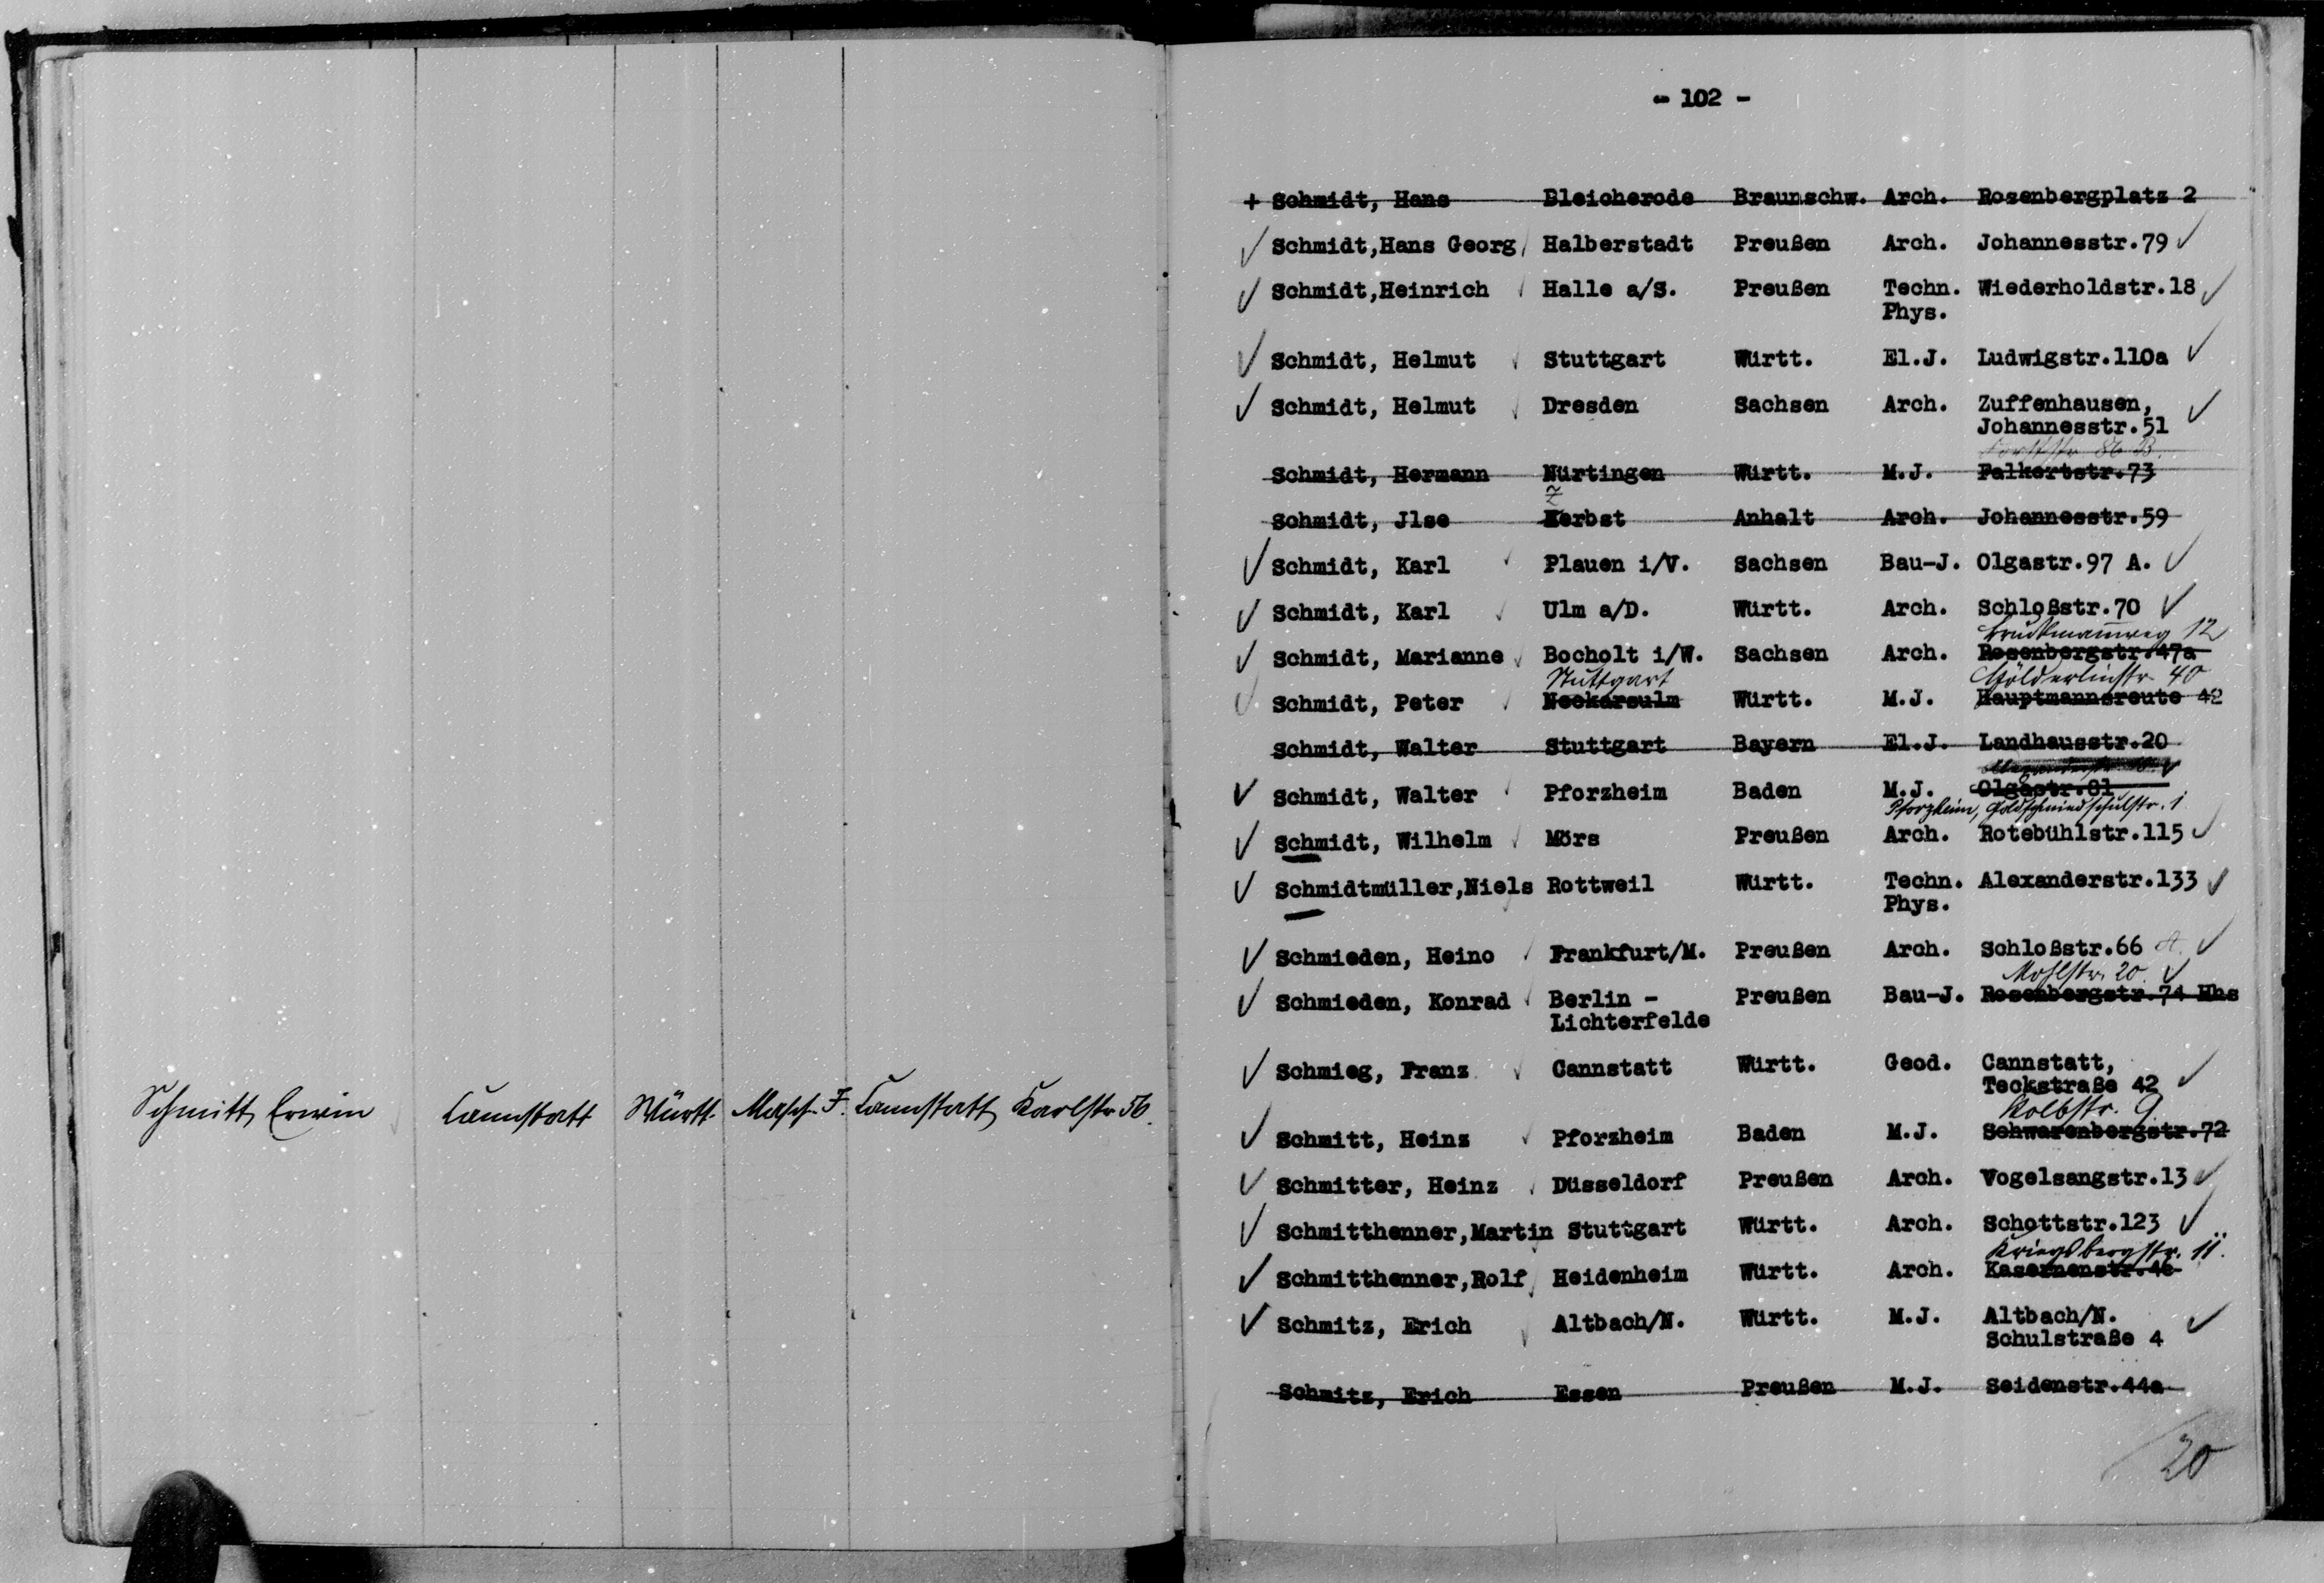 Schmitt Erwin Cannstatt Württ. Masch. J. Cannstatt Karlstr 56.
- 102 -
+ Schmidt, Hans Bleicherode Braunschw. Arch. Rosenbergplatz 2
Schmidt,Hans Georg Halberstadt Preußen Arch. Johannesstr.79
Schmidt,Heinrich Halle a/S. Preußen Techn. Wiederholdstr.18
Phys.
Schmidt, Helmut Stuttgart Württ. El.J. Ludwigstr.110a
Schmidt, Helmut Dresden Sachsen Arch. Zuffenhausen,
Johannesstr.51
86 B.
Schmidt, Hermann Nürtingen Württ. M.J. Falkertstr.73
Z
Schmidt, Jlse Xerbst Anhalt Arch. Johannesstr.59
Schmidt, Karl Plauen i/V. Sachsen Bau-J. Olgastr.97 A.
Schmidt, Karl Ulm a/D. Württ. Arch. Schloßstr.70
12
Schmidt, Marianne Bocholt i/W. Sachsen Arch. Rosenbergstr.47a
Stuttgart Hölderlinstr. 40
Schmidt, Peter Neckarsulm Württ. M.J. Hauptmannsreute 42
Schmidt, Walter Stuttgart Bayern El.J. Landhausstr.20
Schmidt, Walter Pforzheim Baden M.J. Olgastr.81
Pforzheim, Goldschmiedschulstr. 1
Schmidt, Wilhelm Mörs Preußen Arch. Rotebühlstr.115
Schmidtmüller,Niels Rottweil Württ. Techn. Alexanderstr.133
Phys.
Schmieden, Heino Frankfurt/M. Preußen Arch. Schloßstr.66 A.
Mohlstr. 20.
Schmieden, Konrad Berlin - Preußen Bau-J. Rosenbergstr.74 Hhs
Lichterfelde
Schmieg, Franz Cannstatt Württ. Geod. Cannstatt,
Teckstraße 42
Kolbstr. 9.
Schmitt, Heinz Pforzheim Baden M.J. Schwarenbergstr.72
Schmitter, Heinz Düsseldorf Preußen Arch. Vogelsangstr.13
Schmitthenner,Martin Stuttgart Württ. Arch. Schottstr.123
Kriegsbergstr. 11.
Schmitthenner,Rolf Heidenheim Württ. Arch. Kasernenstr.
Schmitz, Erich Altbach/N. Württ. M.J. Altbach/N.
Schulstraße 4
Schmitz, Erich Essen Preußen M.J. Seidenstr.44a
20